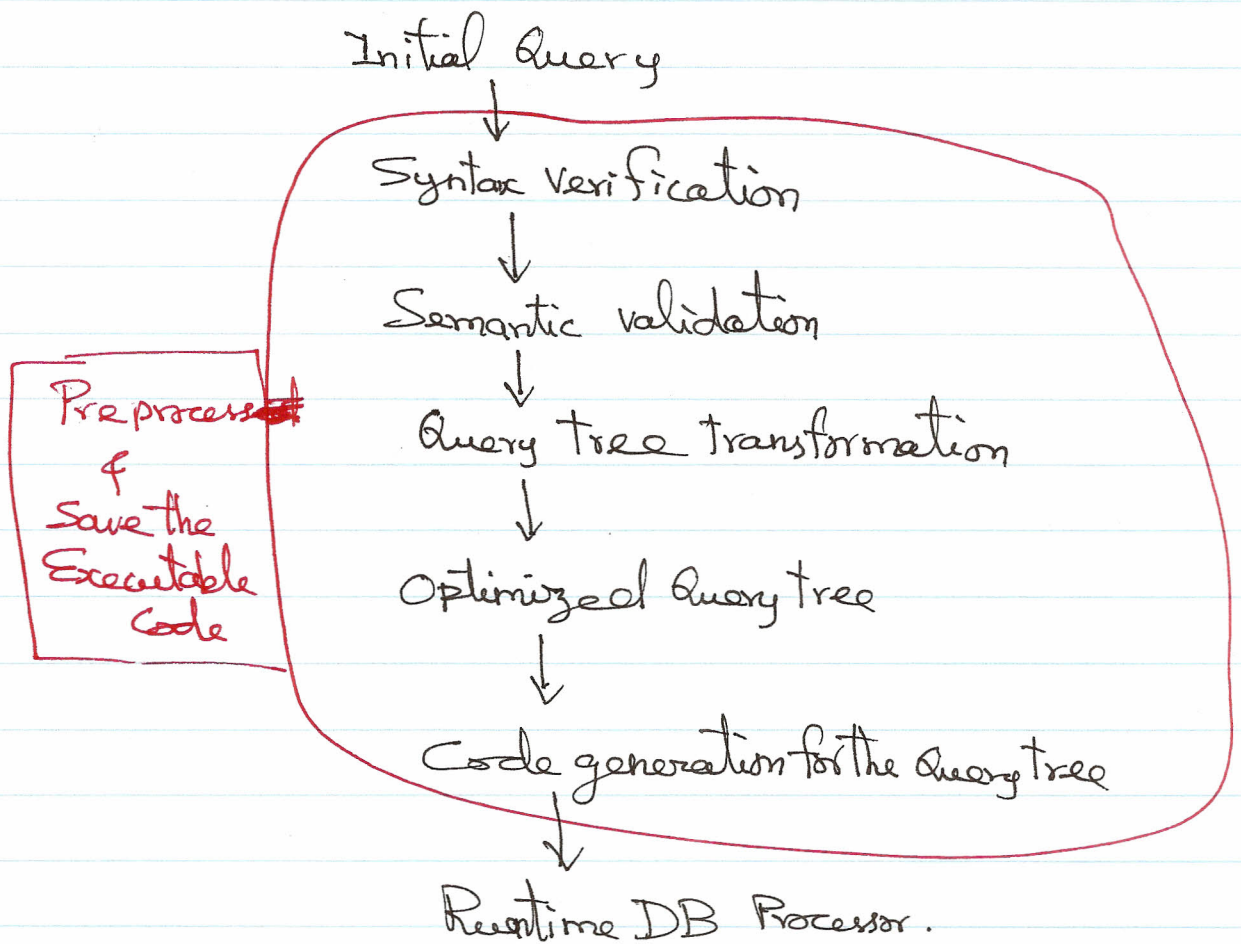 Initial Query
Syntax verification
Semantic validation
Query tree transformation
Optimized Query tree
Code generation for the Query tree
Runtime DB Processor.
Preprocess
&
Save the
Executable
Code